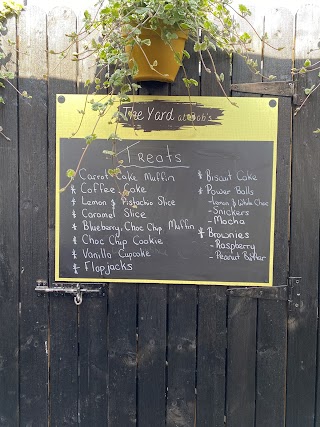 The Yard at Bob's
Treats
* Carrot Cake Muffin
* Coffee Cake
* Lemon & Pistachio Slice
* Caramel Slice
* Blueberry, Choc Chip Muffin
* Choc Chip Cookie
* Vanilla Cupcake
* Flapjacks
* Biscuit Cake
* Power Balls
- Lemon & White Choc
- Snickers
- Mocha
* Brownies
- Raspberry
- Peanut Butter